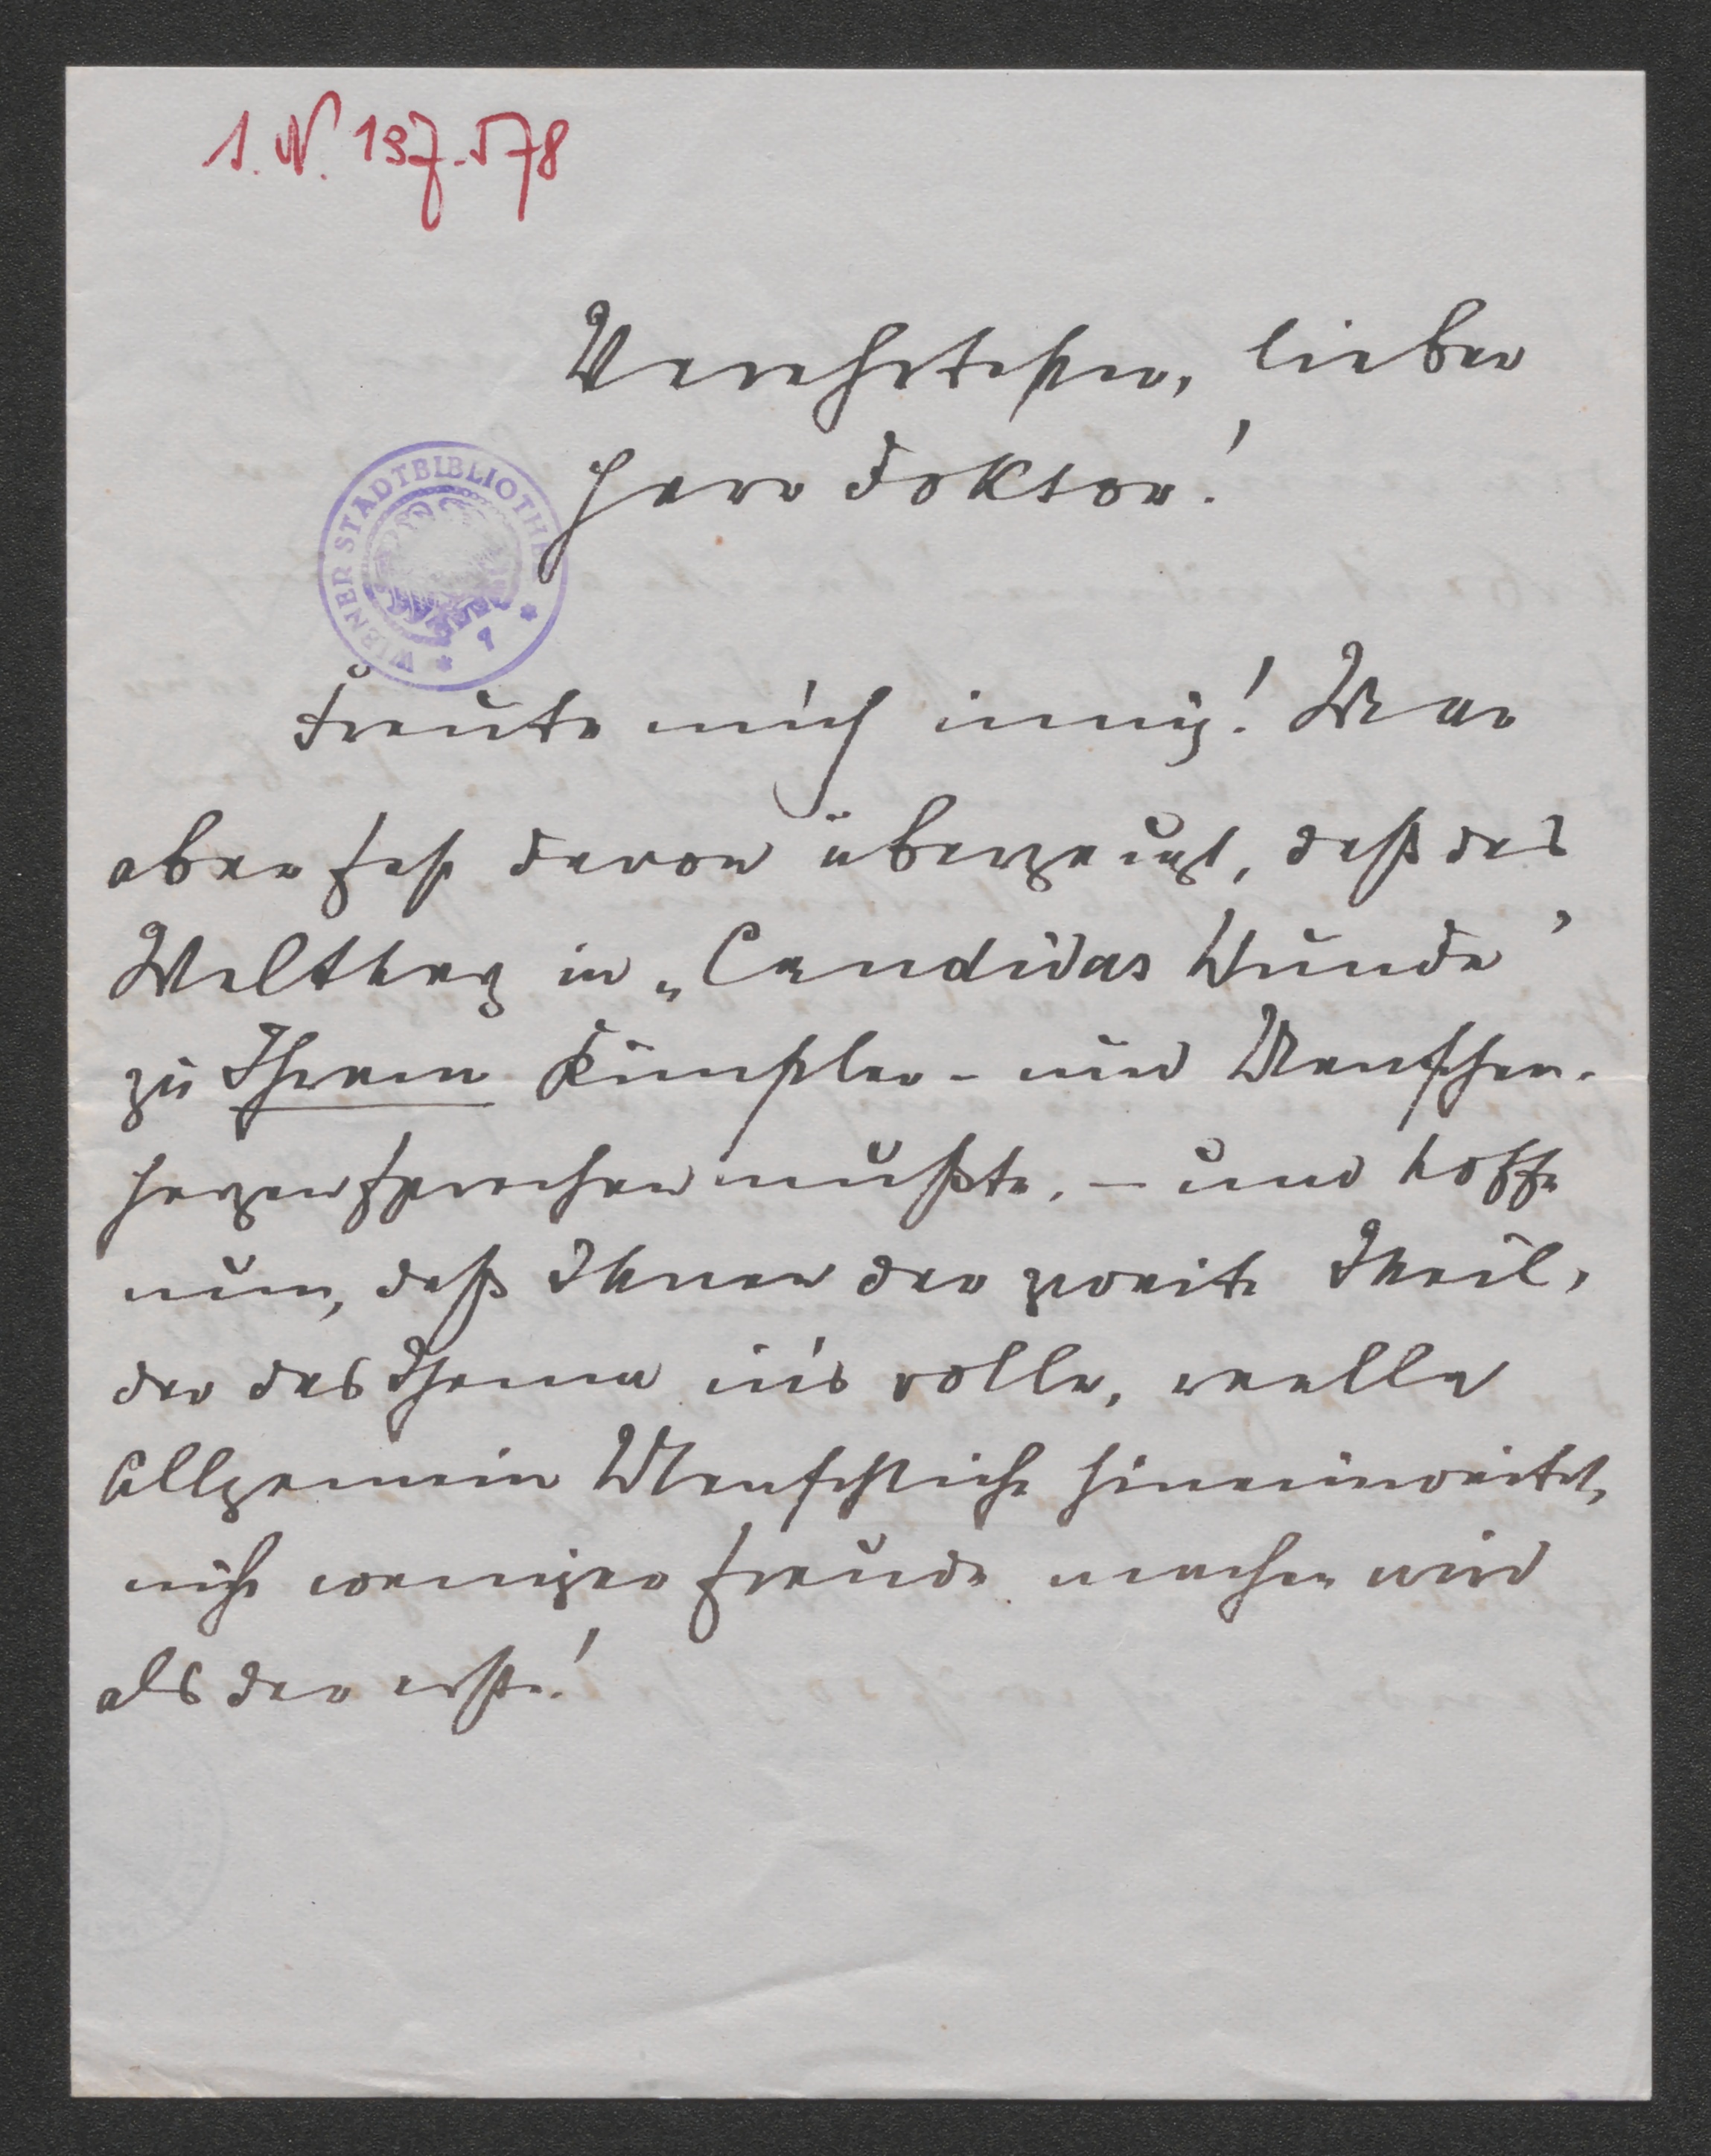 I. N. 137.578
Verehrtester, lieber
Herr Doktor!
WIENER STADTBIBLIOTHEK
Freute mich innig! War
aber fest davon überzeugt, daß das
Weltherz in „Candidas Hunde"
zu Ihrem Künstler- und Menschen-
herzen sprechen mußte. – und hoffe
nun, daß Ihnen der zweite Theil,
der das Thema in's volle, reelle
Allgemein Menschliche hineinweitet,
nicht weniger Freude machen wird
als der erste!